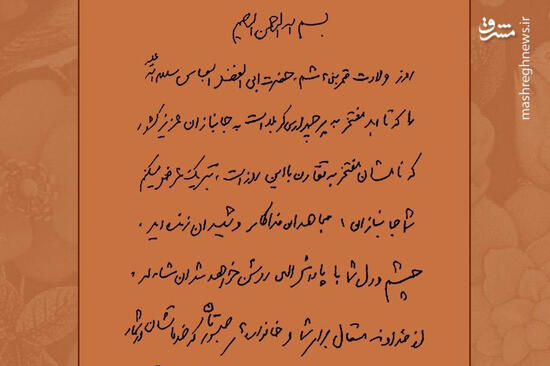 بسم الله الرحمن الرحیم
روز ولادت قمر بنی‌هاشم، حضرت ابی الفضل العباس سلام الله علیه
را که تا ابد مفتخر به پرچمداری کربلا است به جانبازان عزیز کشور
که نامشان مفتخر به تقارن با این روز است، تبریک عرض میکنم
شما جانبازان، مجاهدان فداکار و شهیدان زنده اید.
چشم و دل شما با پاداش الهی روشن خواهد شد ان شاء الله.
از خداوند متعال برای شما و خانواده های صبورتان که خدماتشان در شمار
مشرق
mashreghnews.ir